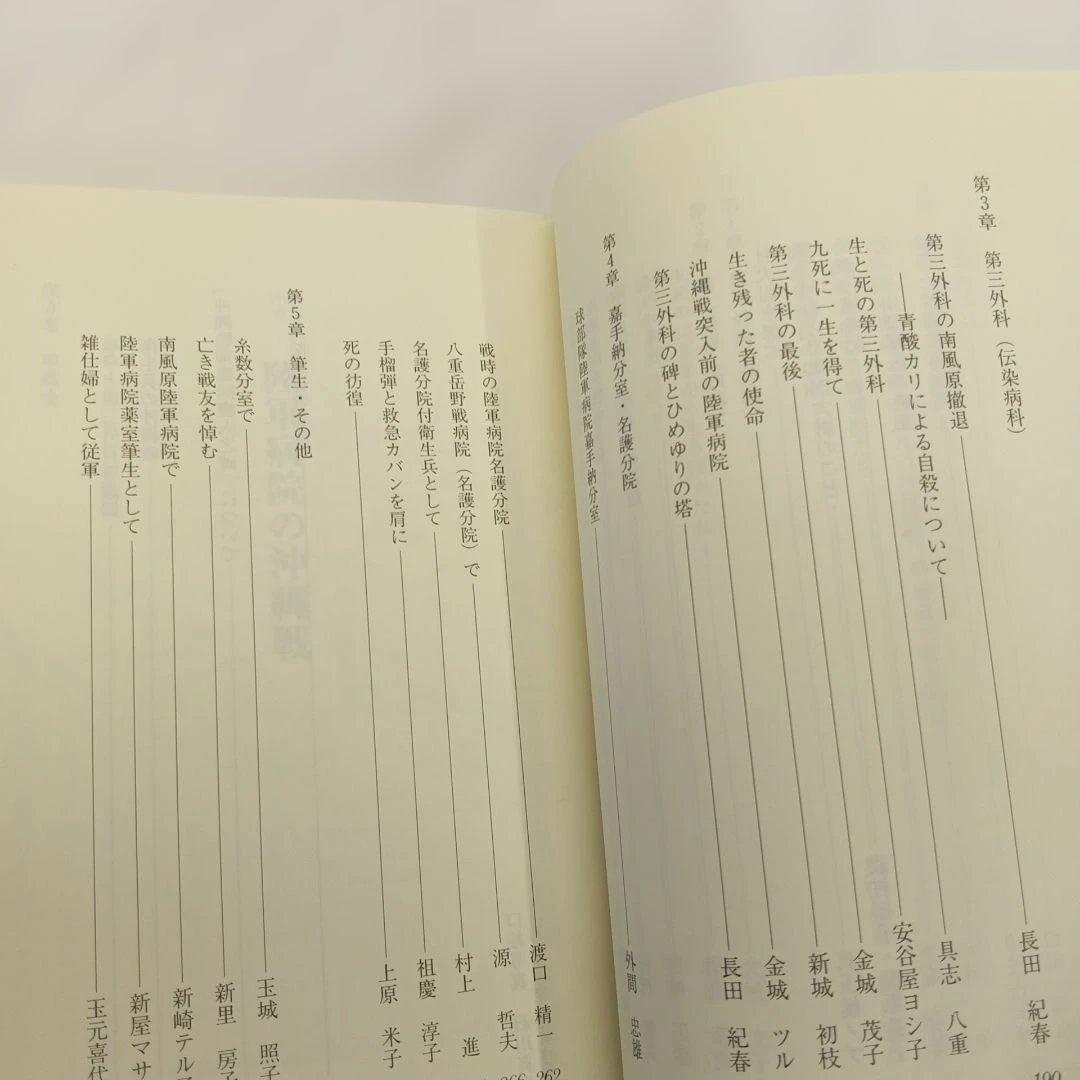 第3章　第三外科（伝染病科）
第三外科の南風原撤退――長田　紀春　190
――青酸カリによる自殺について――
生と死の第三外科――具志　八重
九死に一生を得て――安谷屋ヨシ子
第三外科の最後――金城　茂子
生き残った者の使命――新城　初枝
沖縄戦突入前の陸軍病院――金城　ツル
第三外科の碑とひめゆりの塔――長田　紀春
第4章　嘉手納分室・名護分院
球部隊陸軍病院嘉手納分室――外間　忠雄
戦時の陸軍病院名護分院――渡口　精一　262
八重岳野戦病院（名護分院）で――源　哲夫　266
名護分院付衛生兵として――村上　進
手榴弾と救急カバンを肩に――祖慶　淳子
死の彷徨――上原　米子
第5章　筆生・その他
糸数分室で――玉城　照子
亡き戦友を悼む――新里　房子
南風原陸軍病院で――新崎テル
陸軍病院薬室筆生として――新屋マサ
雑仕婦として従軍――玉元喜代